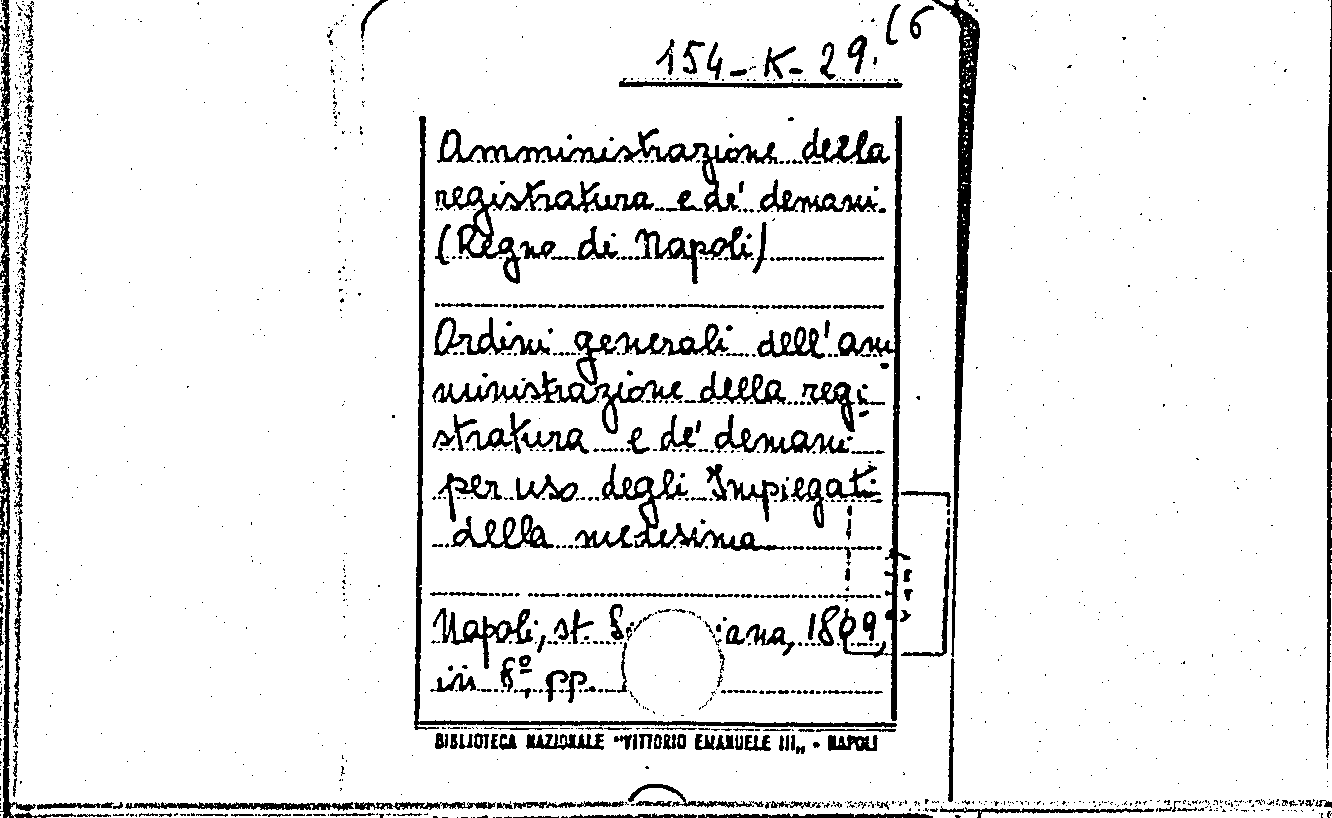 154-K-29.(6
Amministrazione della
registratura e de' demani.
(Regno di Napoli)
Ordini generali dell'am
ministrazione della regi
stratura e de' demani
per uso degli Impiegati
della medesima
Napoli, st. 1809,
in 8º, pp.
BIBLIOTECA NAZIONALE "VITTORIO EMANUELE III„ - NAPOLI